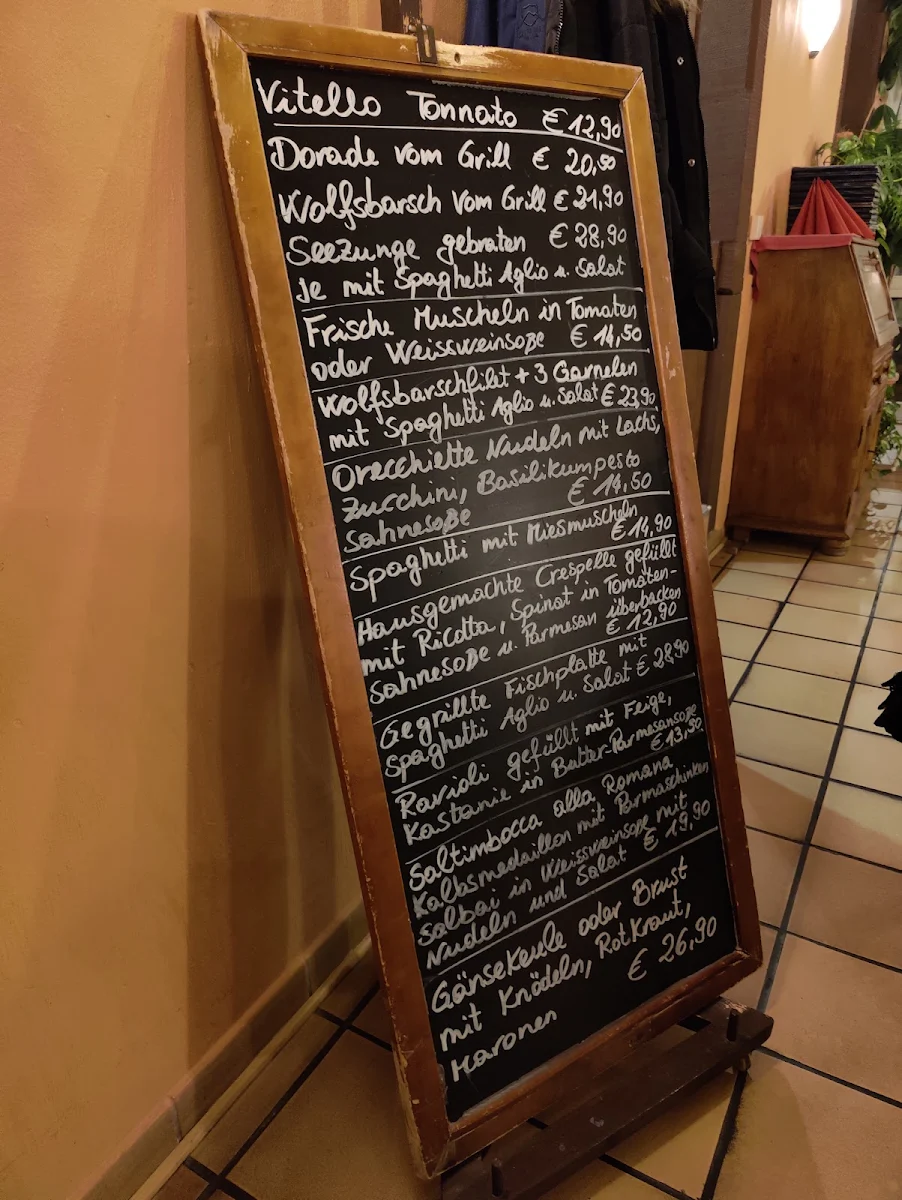 Vitello Tonnato € 12,90
Dorade vom Grill € 20,50
Wolfsbarsch vom Grill € 21,90
Seezunge gebraten € 28,90
Je mit Spaghetti Aglio u. Salat
Frische Muscheln in Tomaten
oder Weissweinsoße € 14,50
Wolfsbarschfilet + 3 Garnelen
mit Spaghetti Aglio u. Salat € 23,90
Orecchiette Nudeln mit Lachs,
Zucchini, Basilikumpesto
Sahnesoße € 14,50
Spaghetti mit Miesmuscheln
€ 14,90
Hausgemachte Crespelle gefüllt
mit Ricotta, Spinat in Tomaten-
Sahnesoße u. Parmesan überbacken
€ 12,90
Gegrillte Fischplatte mit
Spaghetti Aglio u. Salat € 28,90
Ravioli gefüllt mit Feige,
Kastanie in Butter-Parmesansoße
€ 13,50
Saltimbocca alla Romana
Kalbsmedaillon mit Parmaschinken
Salbai in Weissweinsoße mit
Nudeln und Salat € 19,90
Gänsekeule oder Brust
mit Knödeln, Rotkraut,
Maronen € 26,90